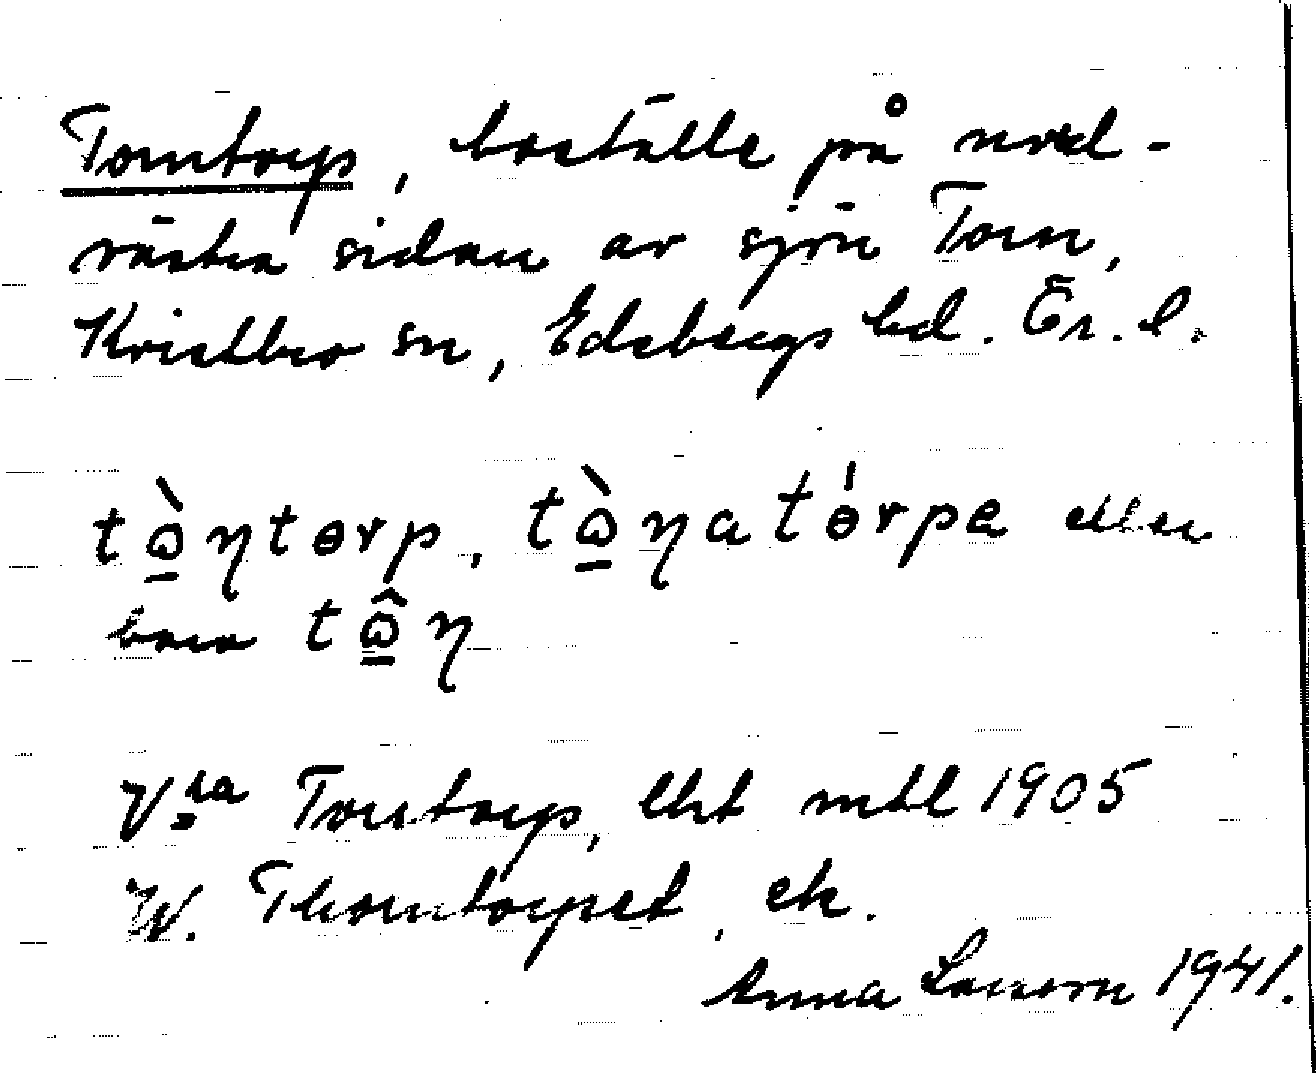 Torntorp, boställe på nord-
västra sidan av sjön Torn,
Kvistbro sn, Edsbergs hd. Ör. l.
tɷ̠̀ηtɵrp, tɷ̠̀ηatɵ́rpa eller
bara tɷ̠̂η
V:ra Torntorp, Uht mtl 1905
W. Thorntorpet, ek.
Anna Larsson 1941.